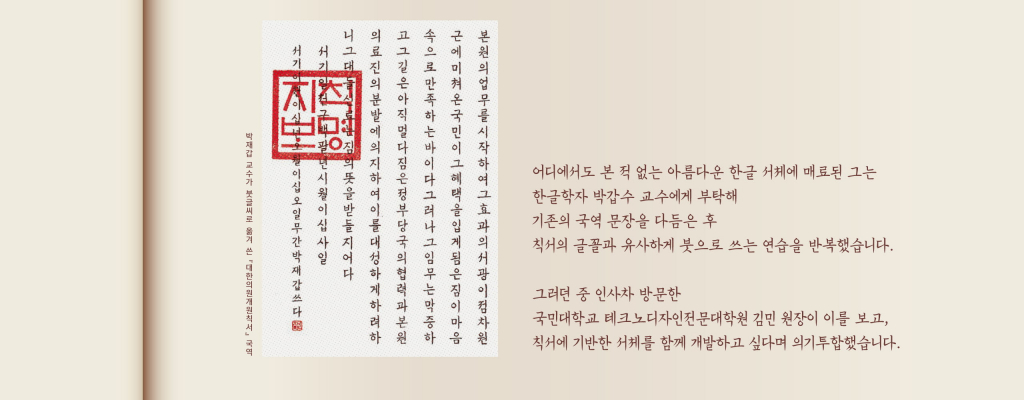 본원의업무를시작하여그효과의서광이점차원
근에미쳐온국민이그혜택을입게됨은짐이마음
속으로만족하는바이다그러나그임무는막중하
고그길은아직멀다짐은정부당국의협력과본원
의료진의분발에의지하여이를대성하게하려하
니그대들신료는짐의뜻을받들지어다
서기일천구백팔년시월이십사일
서기이천이십년오월이십오일무간박재갑쓰다
칙명지보
박재갑 교수가 붓글씨로 옮겨 쓴 「대한의원개원칙서」 국역
어디에서도 본 적 없는 아름다운 한글 서체에 매료된 그는
한글학자 박갑수 교수에게 부탁해
기존의 국역 문장을 다듬은 후
칙서의 글꼴과 유사하게 붓으로 쓰는 연습을 반복했습니다.
그러던 중 인사차 방문한
국민대학교 테크노디자인전문대학원 김민 원장이 이를 보고,
칙서에 기반한 서체를 함께 개발하고 싶다며 의기투합했습니다.